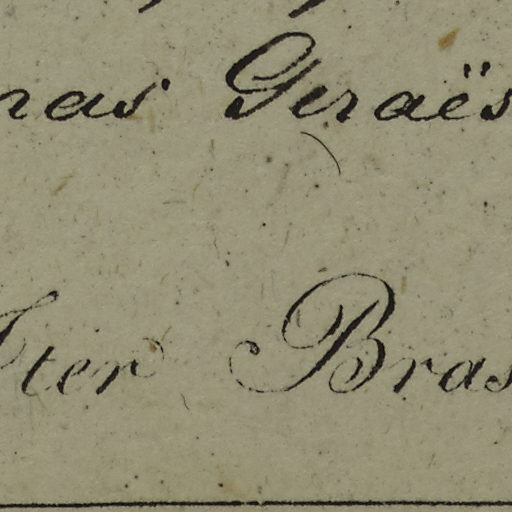 nas Geraës
Iter Bras